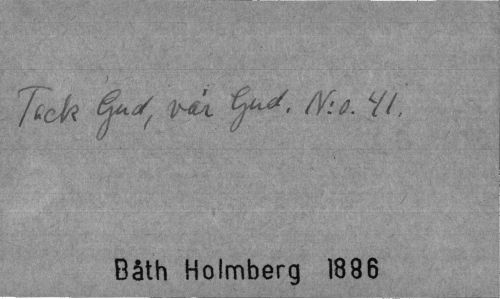 Tack Gud, vår Gud. N:o. 41.
Båth Holmberg 1886